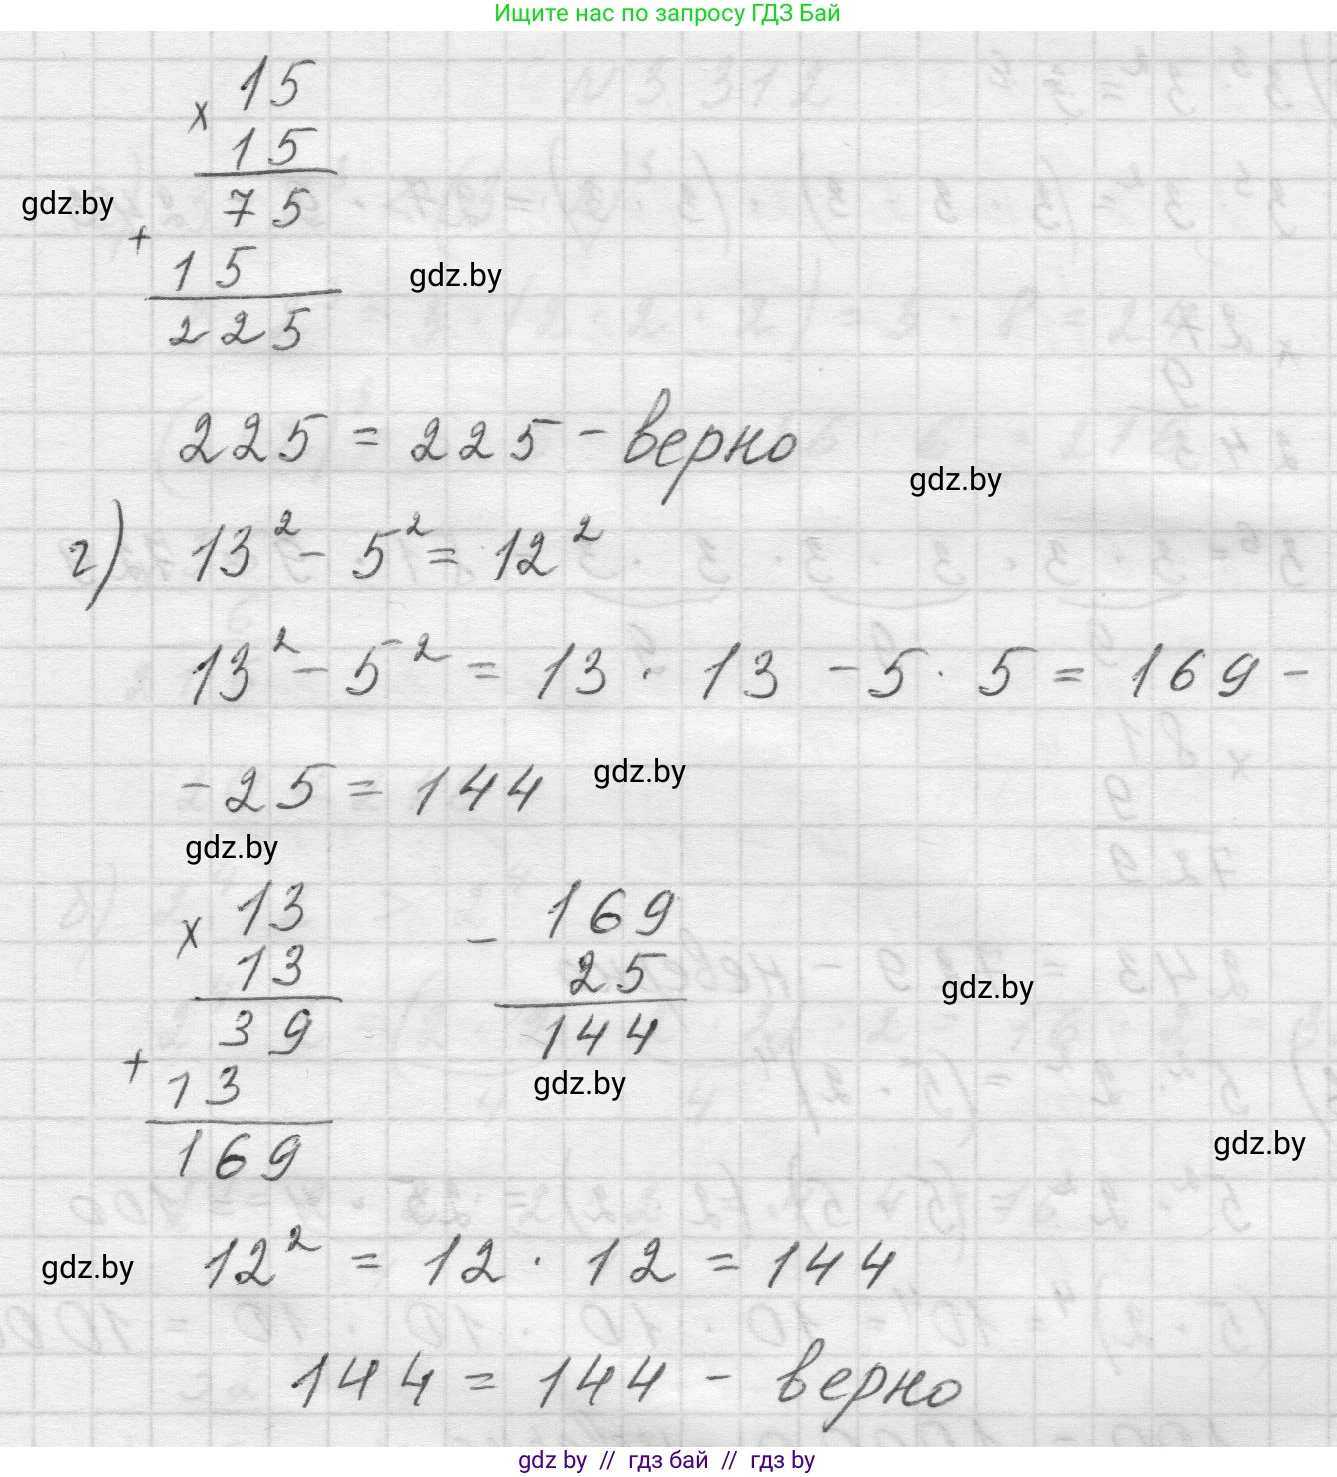 Ищите нас по запросу ГДЗ Бай
15
× 15
75
gdz.by
+ 15
gdz.by
225
225 = 225 - верно
gdz.by
г) 13² - 5² = 12²
13² - 5² = 13 · 13 - 5 · 5 = 169 -
- 25 = 144
gdz.by
gdz.by
× 13
13
39
+ 13
169
- 169
25
144
gdz.by
gdz.by
gdz.by
gdz.by
12² = 12 · 12 = 144
144 = 144 - верно
gdz.by // гдз бай // гдз by